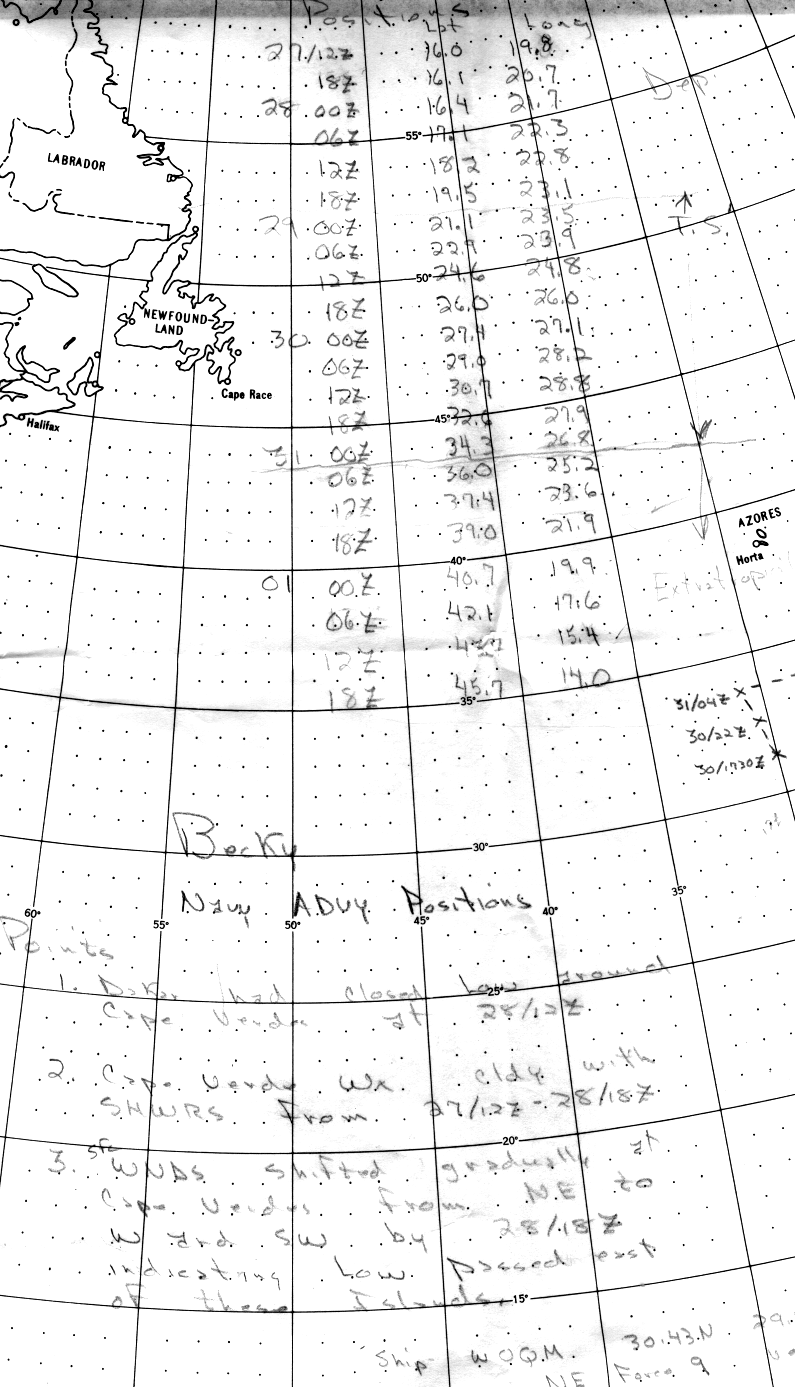 Positions
Lat Long
27/12Z 16.0 19.8
18Z 16.1 20.7
28 00Z 16.4 21.7
Dep.
06Z 17.1 22.3
55°
12Z 18.2 22.8
LABRADOR
18Z 19.5 23.1
29 00Z 21.1 23.5
T.S.
06Z 22.9 23.9
12Z 24.6 24.8
50°
18Z 26.0 26.0
NEWFOUND-
LAND
30 00Z 27.4 27.1
06Z 29.0 28.2
12Z 30.7 28.8
Cape Race
18Z 32.6 27.9
45°
Halifax
31 00Z 34.3 26.8
06Z 36.0 25.2
12Z 37.4 23.6
18Z 39.0 21.9
AZORES
Horta
40°
01 00Z 40.7 19.9
06Z 42.1 17.6
12Z 15.4
18Z 45.7 14.0
35°
31/04Z
30/22Z
30/1730Z
Becky
30°
35°
Navy ADVY Positions
60° 55° 50° 45° 40°
Points
1. Dakar had closed Low around
25°
Cape Verdes at 28/12Z
2. Cape Verde Wx cldy with
SHWRS From 27/12Z - 28/18Z
20°
3. sfc WNDS shifted gradually at
Cape Verdes from NE to
W and SW by 28/18Z
indicating Low passed east
of these Islands.
15°
Ship WOQM. 30.43N 29.
NE Force 9